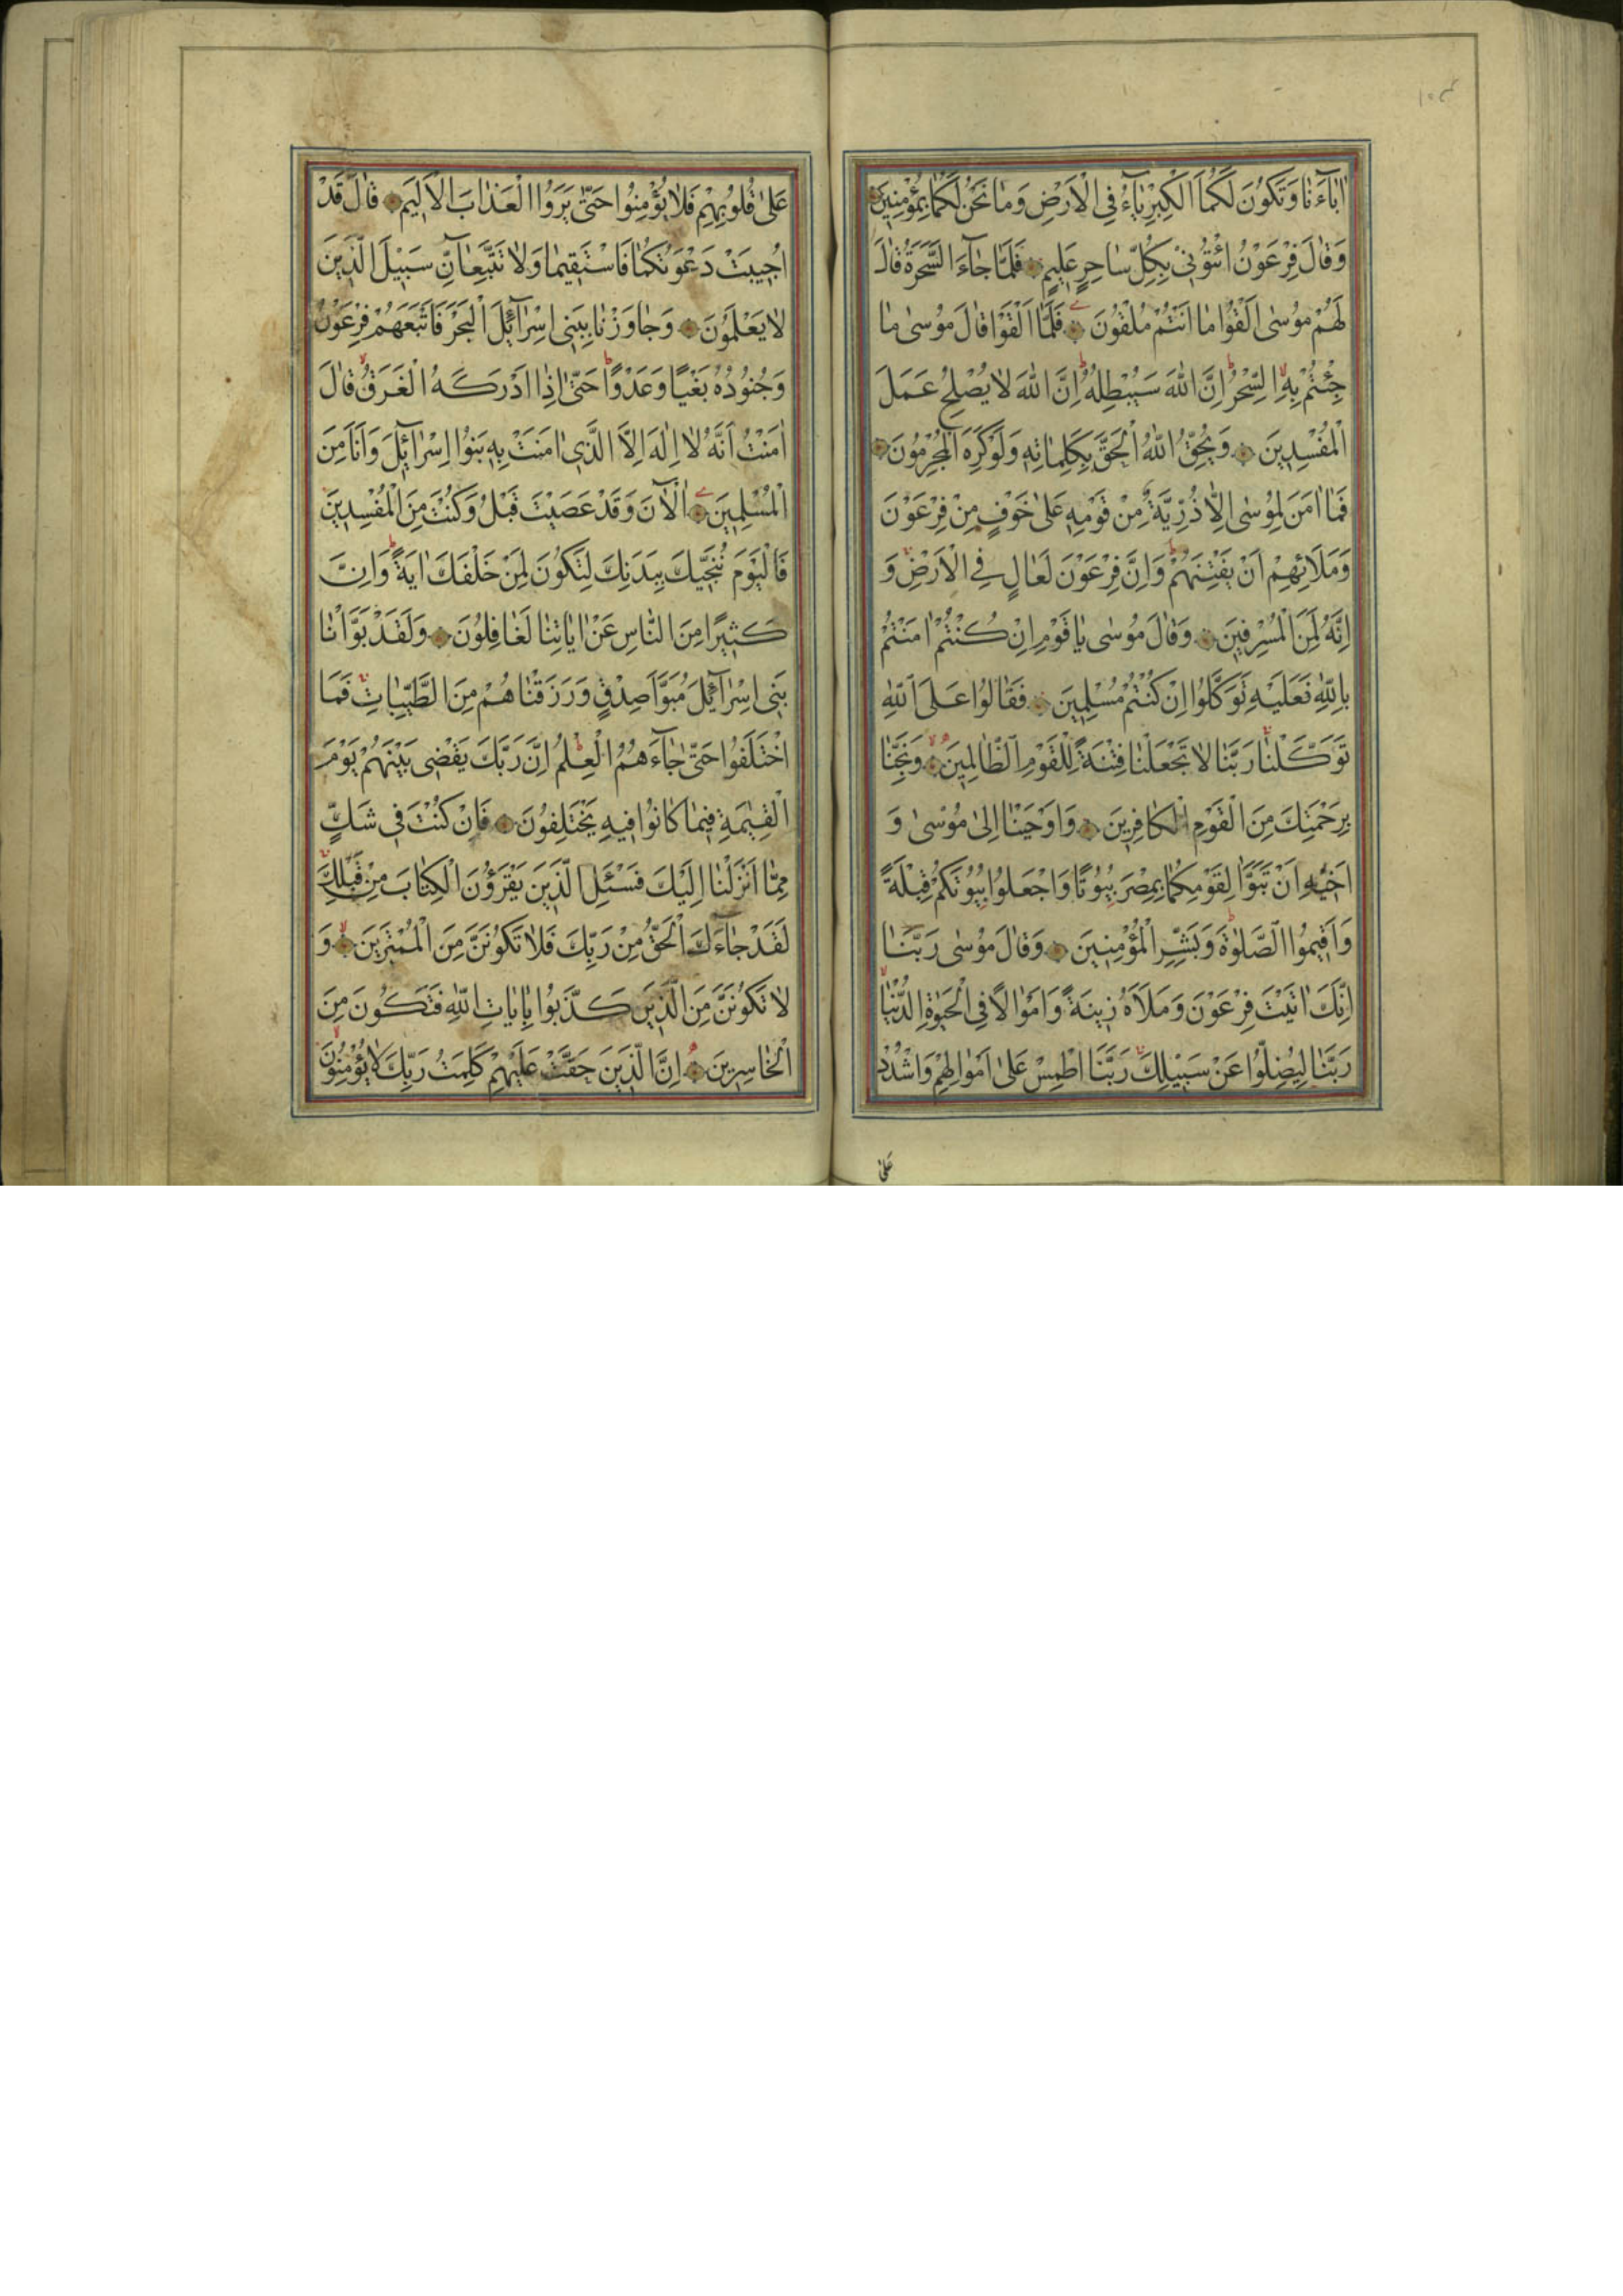 ١٠٣
اٰبٰٓاءَنٰا وَتَكُونَ لَكُمَا الْكِبْرِيٰٓاءُ فِي الْاَرْضِ وَمٰا نَحْنُ لَكُمٰا بِمُؤْمِنِينَ
وَقٰالَ فِرْعَوْنُ ائْتُونِي بِكُلِّ سٰاحِرٍ عَلِيمٍ فَلَمّٰا جٰٓاءَ السَّحَرَةُ قٰالَ
لَهُمْ مُوسٰى اَلْقُوا مٰا اَنْتُمْ مُلْقُونَ فَلَمّٰا اَلْقَوْا قٰالَ مُوسٰى مٰا
جِئْتُمْ بِهِ السِّحْرُ اِنَّ اللّٰهَ سَيُبْطِلُهُ اِنَّ اللّٰهَ لٰا يُصْلِحُ عَمَلَ
الْمُفْسِدِينَ وَيُحِقُّ اللّٰهُ الْحَقَّ بِكَلِمٰاتِهِ وَلَوْ كَرِهَ الْمُجْرِمُونَ
فَمٰا اٰمَنَ لِمُوسٰى اِلّٰا ذُرِّيَّةٌ مِنْ قَوْمِهِ عَلٰى خَوْفٍ مِنْ فِرْعَوْنَ
وَمَلَائِهِمْ اَنْ يَفْتِنَهُمْ وَاِنَّ فِرْعَوْنَ لَعٰالٍ فِي الْاَرْضِ وَ
اِنَّهُ لَمِنَ الْمُسْرِفِينَ وَقٰالَ مُوسٰى يٰا قَوْمِ اِنْ كُنْتُمْ اٰمَنْتُمْ
بِاللّٰهِ فَعَلَيْهِ تَوَكَّلُوا اِنْ كُنْتُمْ مُسْلِمِينَ فَقٰالُوا عَلَى اللّٰهِ
تَوَكَّلْنٰا رَبَّنٰا لٰا تَجْعَلْنٰا فِتْنَةً لِلْقَوْمِ الظّٰالِمِينَ وَنَجِّنٰا
بِرَحْمَتِكَ مِنَ الْقَوْمِ الْكٰافِرِينَ وَاَوْحَيْنٰا اِلٰى مُوسٰى وَ
اَخِيهِ اَنْ تَبَوَّاٰ لِقَوْمِكُمٰا بِمِصْرَ بُيُوتًا وَاجْعَلُوا بُيُوتَكُمْ قِبْلَةً
وَاَقِيمُوا الصَّلٰوةَ وَبَشِّرِ الْمُؤْمِنِينَ وَقٰالَ مُوسٰى رَبَّنٰا
اِنَّكَ اٰتَيْتَ فِرْعَوْنَ وَمَلَاَهُ زِينَةً وَاَمْوٰالًا فِي الْحَيٰوةِ الدُّنْيٰا
رَبَّنٰا لِيُضِلُّوا عَنْ سَبِيلِكَ رَبَّنَا اطْمِسْ عَلٰى اَمْوٰالِهِمْ وَاشْدُدْ
عَلٰى
عَلٰى قُلُوبِهِمْ فَلٰا يُؤْمِنُوا حَتّٰى يَرَوُا الْعَذٰابَ الْاَلِيمَ قٰالَ قَدْ
اُجِيبَتْ دَعْوَتُكُمٰا فَاسْتَقِيمٰا وَلٰا تَتَّبِعٰٓانِّ سَبِيلَ الَّذِينَ
لٰا يَعْلَمُونَ وَجٰاوَزْنٰا بِبَنِي اِسْرٰٓائِلَ الْبَحْرَ فَاَتْبَعَهُمْ فِرْعَوْنُ
وَجُنُودُهُ بَغْيًا وَعَدْوًا حَتّٰى اِذٰا اَدْرَكَهُ الْغَرَقُ قٰالَ
اٰمَنْتُ اَنَّهُ لٰا اِلٰهَ اِلَّا الَّذِي اٰمَنَتْ بِهِ بَنُوا اِسْرٰٓائِلَ وَاَنَا مِنَ
الْمُسْلِمِينَ اٰلْاٰنَ وَقَدْ عَصَيْتَ قَبْلُ وَكُنْتَ مِنَ الْمُفْسِدِينَ
فَالْيَوْمَ نُنَجِّيكَ بِبَدَنِكَ لِتَكُونَ لِمَنْ خَلْفَكَ اٰيَةً وَاِنَّ
كَثِيرًا مِنَ النّٰاسِ عَنْ اٰيٰاتِنٰا لَغٰافِلُونَ وَلَقَدْ بَوَّاْنٰا
بَنِي اِسْرٰٓائِلَ مُبَوَّاَ صِدْقٍ وَرَزَقْنٰاهُمْ مِنَ الطَّيِّبٰاتِ فَمَا
اخْتَلَفُوا حَتّٰى جٰٓاءَهُمُ الْعِلْمُ اِنَّ رَبَّكَ يَقْضِي بَيْنَهُمْ يَوْمَ
الْقِيٰمَةِ فِيمٰا كٰانُوا فِيهِ يَخْتَلِفُونَ فَاِنْ كُنْتَ فِي شَكٍّ
مِمّٰا اَنْزَلْنٰا اِلَيْكَ فَسْئَلِ الَّذِينَ يَقْرَؤُنَ الْكِتٰابَ مِنْ قَبْلِكَ
لَقَدْ جٰٓاءَكَ الْحَقُّ مِنْ رَبِّكَ فَلٰا تَكُونَنَّ مِنَ الْمُمْتَرِينَ وَ
لٰا تَكُونَنَّ مِنَ الَّذِينَ كَذَّبُوا بِاٰيٰاتِ اللّٰهِ فَتَكُونَ مِنَ
الْخٰاسِرِينَ اِنَّ الَّذِينَ حَقَّتْ عَلَيْهِمْ كَلِمَتُ رَبِّكَ لٰا يُؤْمِنُونَ